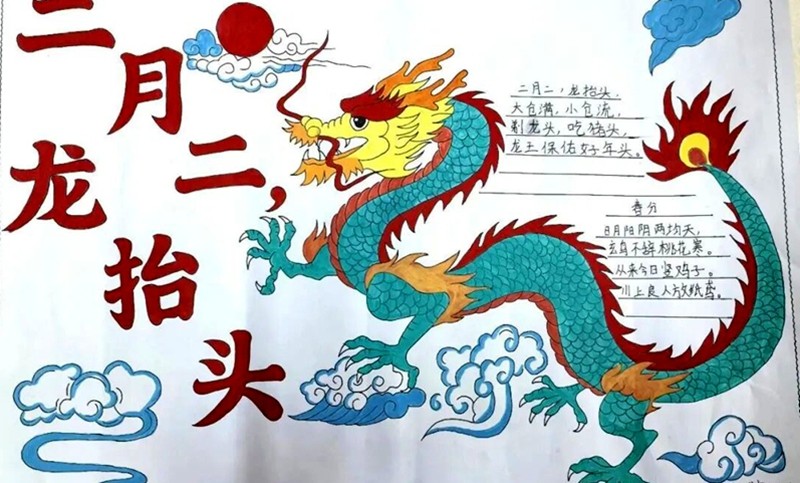 二月二，
龙抬头
二月二，龙抬头，
大仓满，小仓流，
剃龙头，吃猪头，
龙王保佑好年头。
春分
日月阳阴两均天，
玄鸟不辞桃花寒。
从来今日竖鸡子。
川上良人放纸鸢。